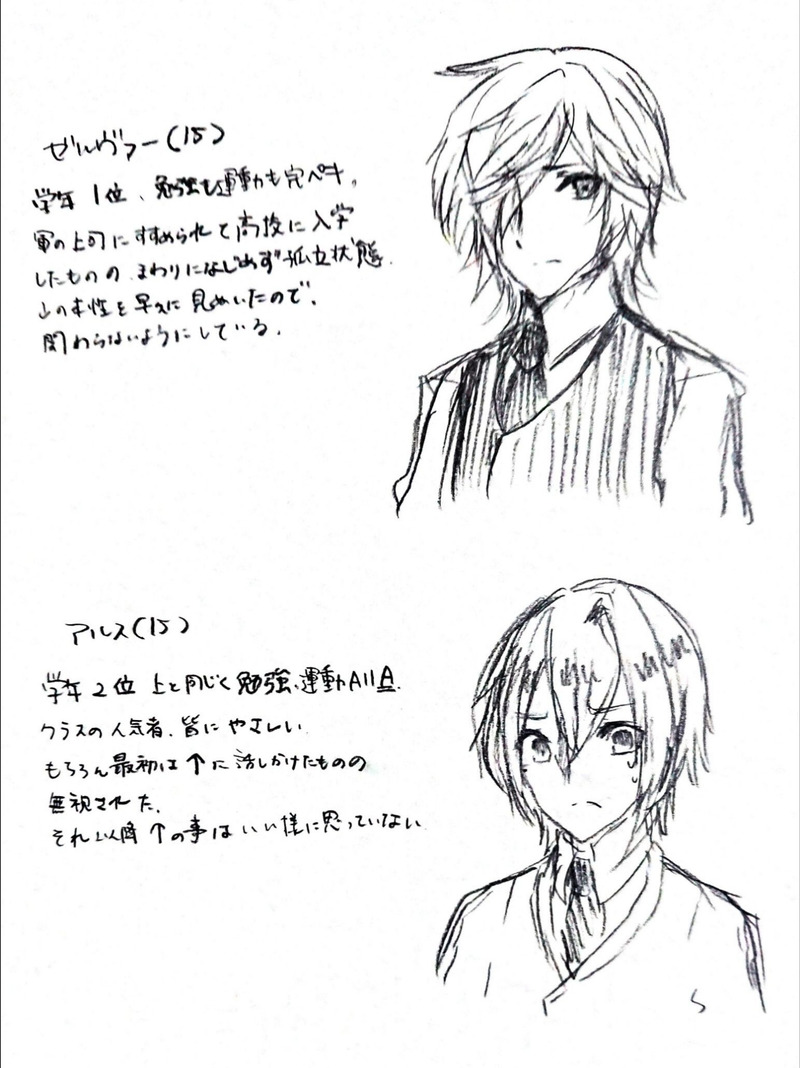 ゼルヴァー(15)
学年1位、勉強も運動も完ペキ。
軍の上司にすすめられて高校に入学
したものの、まわりになじめず孤立状態。
↓の本性を早々に見ぬいたので、
関わらないようにしている。
アルス(15)
学年2位 上と同じく勉強、運動All A.
クラスの人気者、皆にやさしい
もちろん最初は↑に話しかけたものの
無視された。
それ以降↑の事はいい様に思っていない